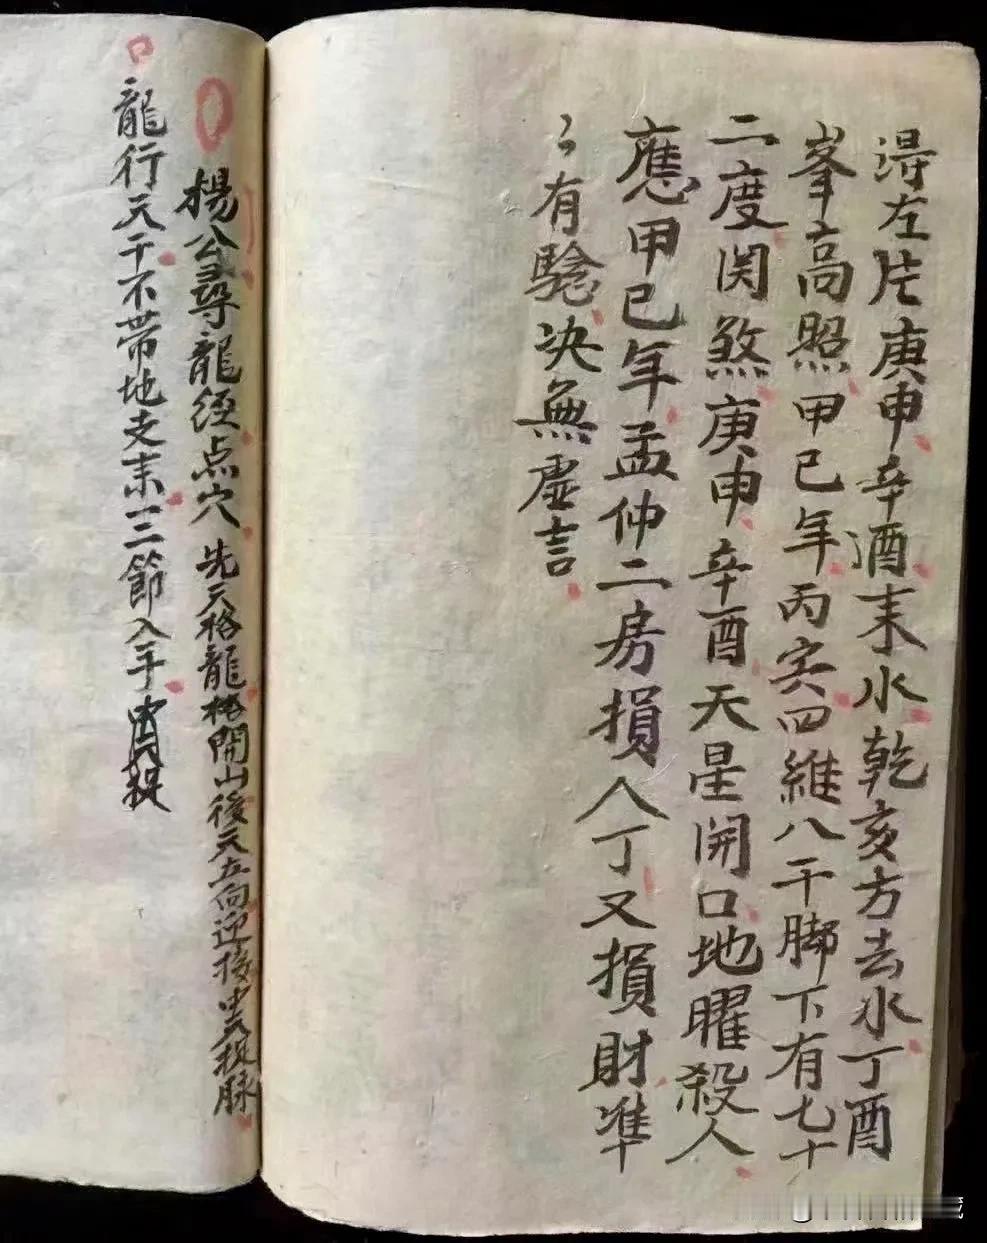 淂左片庚申辛酉末水乾亥方去水丁酉
峯高照甲己年丙寅四維八干脚下有七十
二度関煞庚申辛酉天星開口地曜殺人
應甲己年孟仲二房損人丁又損財準
々有驗决無虛言
楊公尋龍經点穴先天格龍格開山後天立向迎接脉
龍行天干不帶地支末三節入手